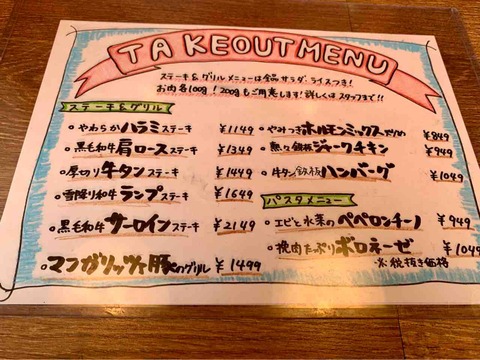 TAKEOUTMENU
ステーキ&グリルメニューは全品 サラダ・ライスつき!
お肉各100g! 200gもご用意します! 詳しくはスタッフまで!!
ステーキ&グリル
・やわらかハラミステーキ ¥1149
・黒毛和牛肩ロースステーキ ¥1349
・厚切り牛タンステーキ ¥1449
・雪降り和牛ランプステーキ ¥1649
・黒毛和牛サーロインステーキ ¥2149
・マンガリッツァ豚のグリル ¥1499
・やみつきホルモンミックス炒め ¥849
・熱々鉄板ジャークチキン ¥949
・牛タン鉄板ハンバーグ ¥1049
パスタメニュー
・エビと水菜のペペロンチーノ ¥949
・挽肉たっぷりボロネーゼ ¥1049
※税抜き価格